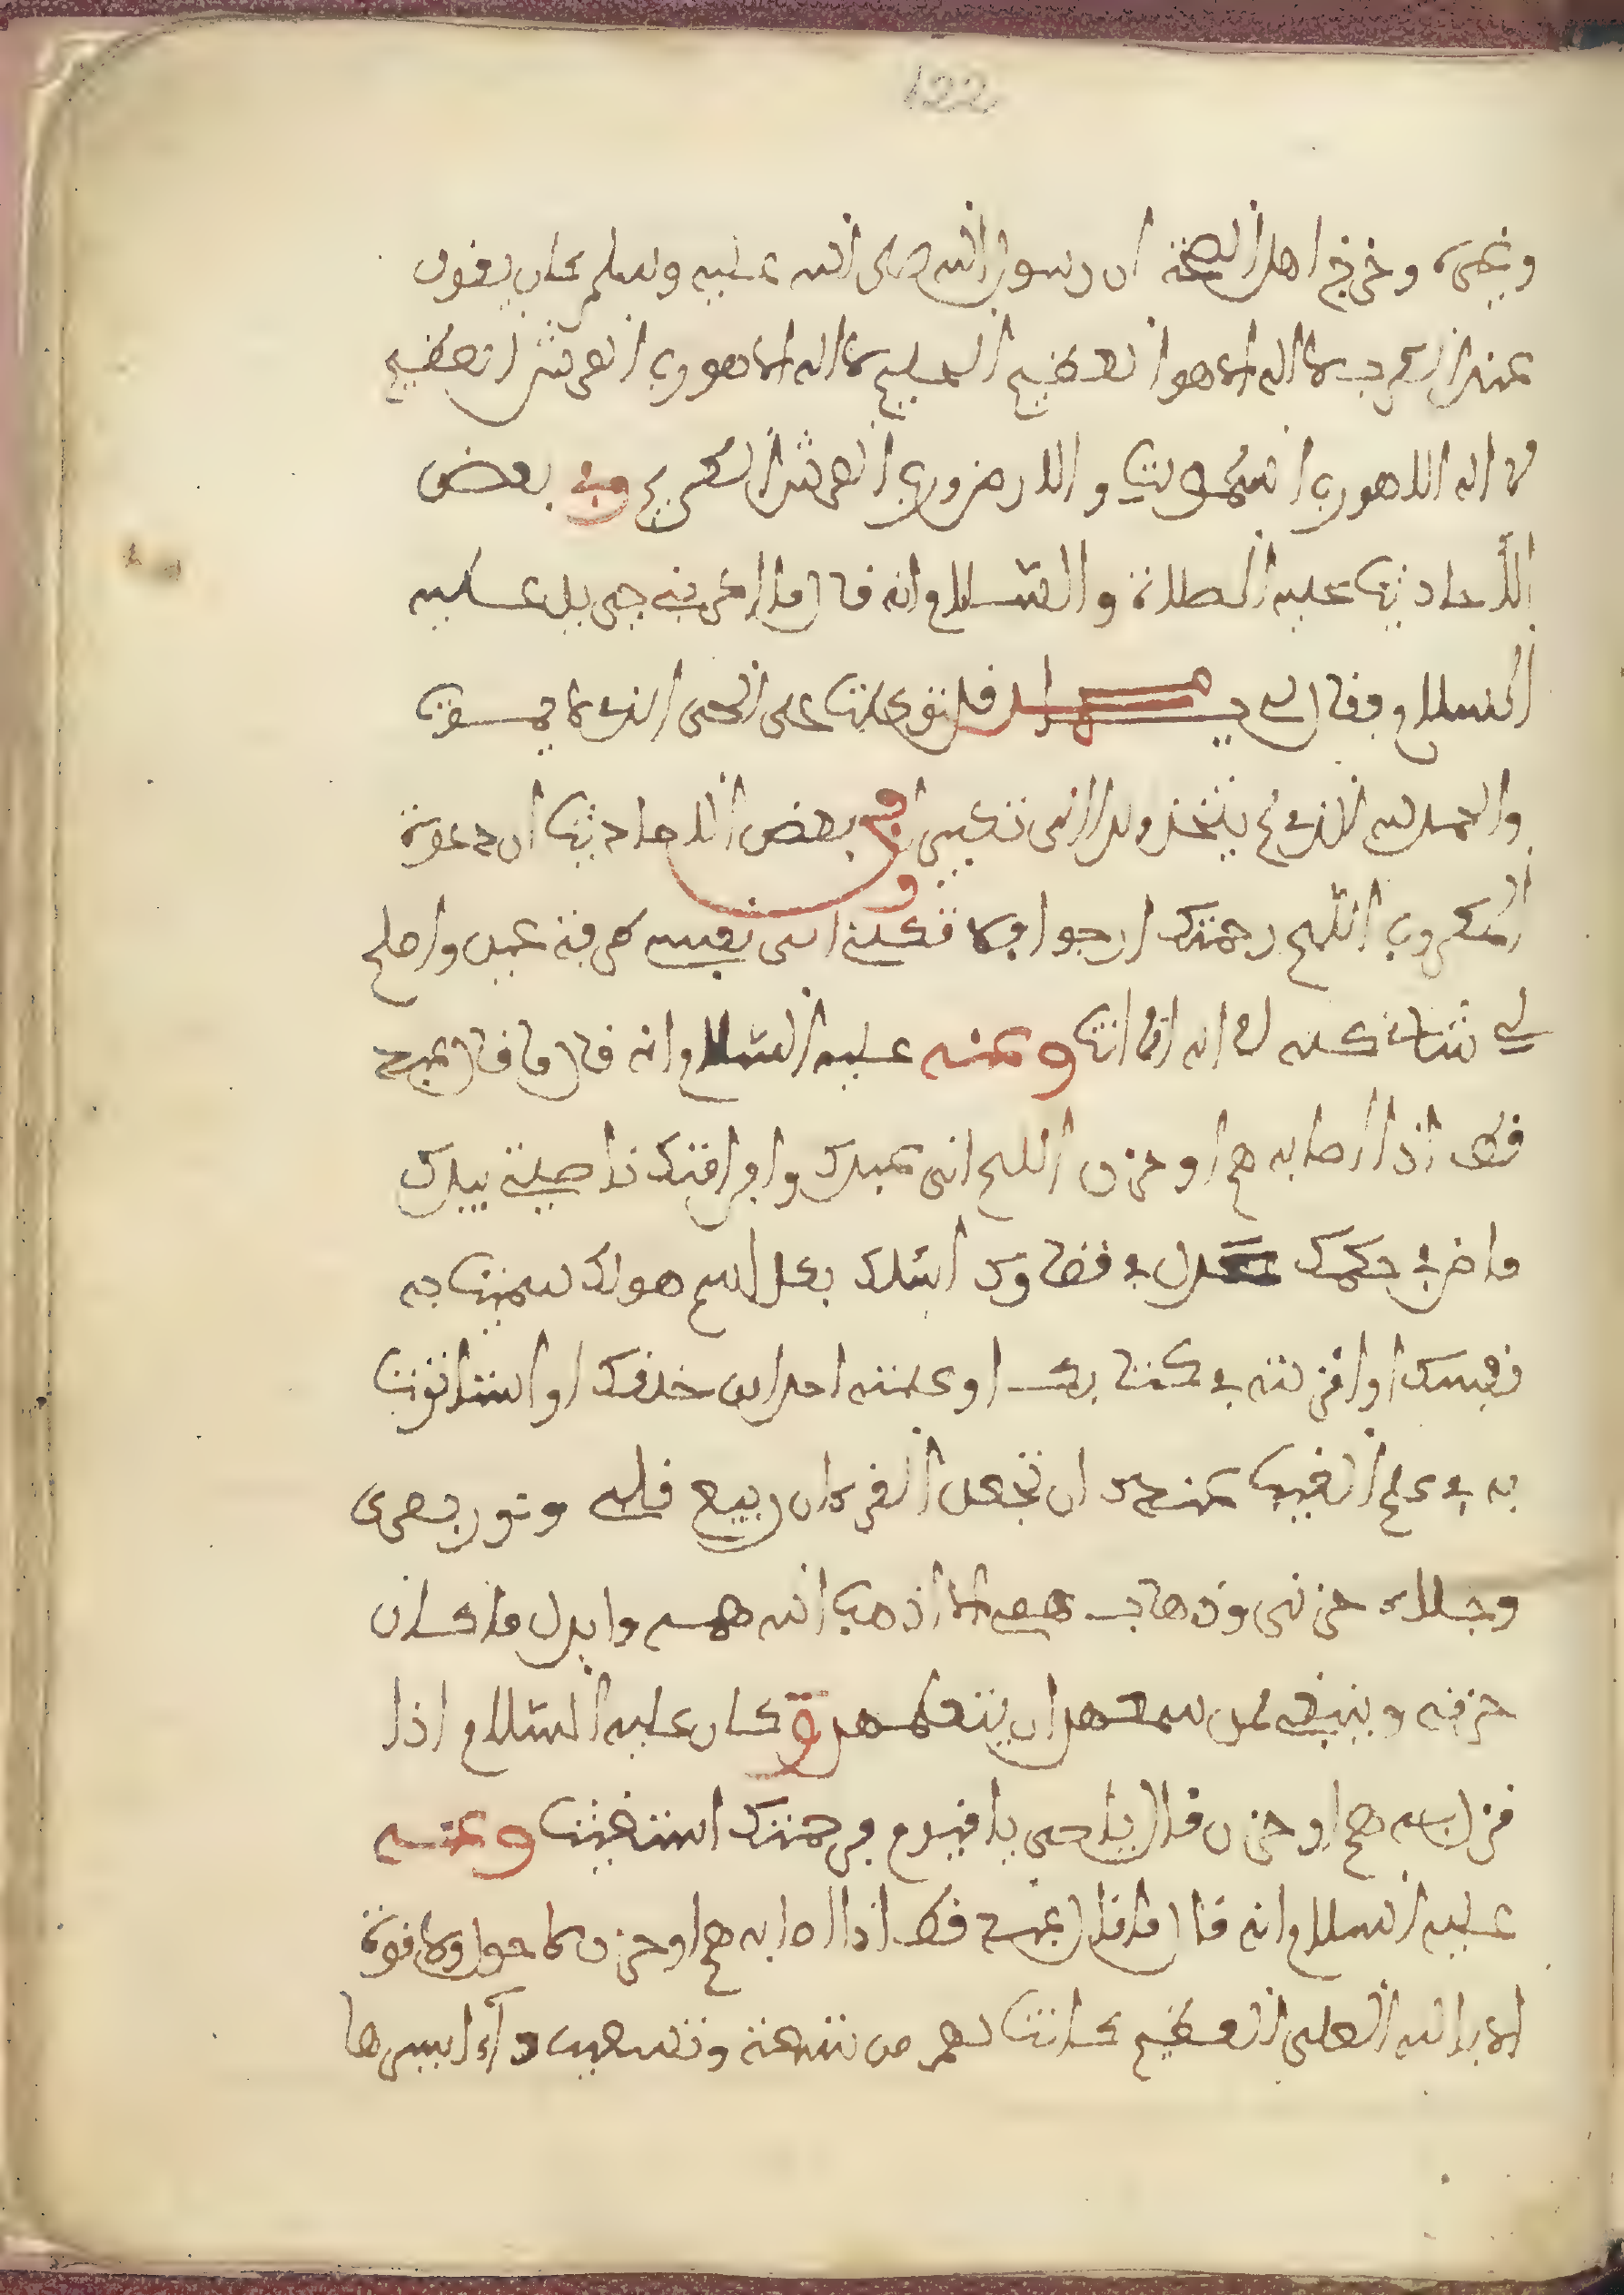 122
وغيره وخرج اهل الصحة ان رسول الله صلى الله عليه وسلم كان يقول
عند الكرب لا اله الا هو العظيم الحليم لا اله الا هو رب العرش العظيم
لا اله الا هو رب السموات والارض ورب العرش الكريم وفي بعض
الاحاديث عليه الصلاة والسلام انه قال ما اكربني جبريل عليه
السلام فقال لي يا محمد قل توكلت على الحي الذي لا يموت
والحمد لله الذي لم يتخذ ولدا الى تكبيرا وفي بعض الاحاديث ان دعوة
المكروب اللهم رحمتك ارجوا ولا تكلني الى نفسي طرفة عين واصلح
لي شاني كله لا اله الا انت وعنه عليه السلام انه قال ما قال عبد
قط اذا اصابه هم او حزن اللهم اني عبدك وابن امتك ناصيتي بيدك
ماض في حكمك عدل في قضاوك اسلك بكل اسم هو لك سميت به
نفسك او انزلته في كتابك او علمته احدا من خلقك او استاثرت
به في علم الغيب عندك ان تجعل القرءان ربيع قلبي ونور بصري
وجلاء حزني وذهاب همي الا اذهب الله همه وابدل مكان
حزنه وينبغي لمن سمعهن ان يتعلمهن وكان عليه السلام اذا
نزل به هم او حزن قال يا حي يا قيوم برحمتك استغيث وعنه
عليه السلام انه قال ما قال عبد قط اذا اصابه هم او حزن لا حول ولا قوة
الا بالله العلي العظيم كانت له من تسعة وتسعين داء ايسرها